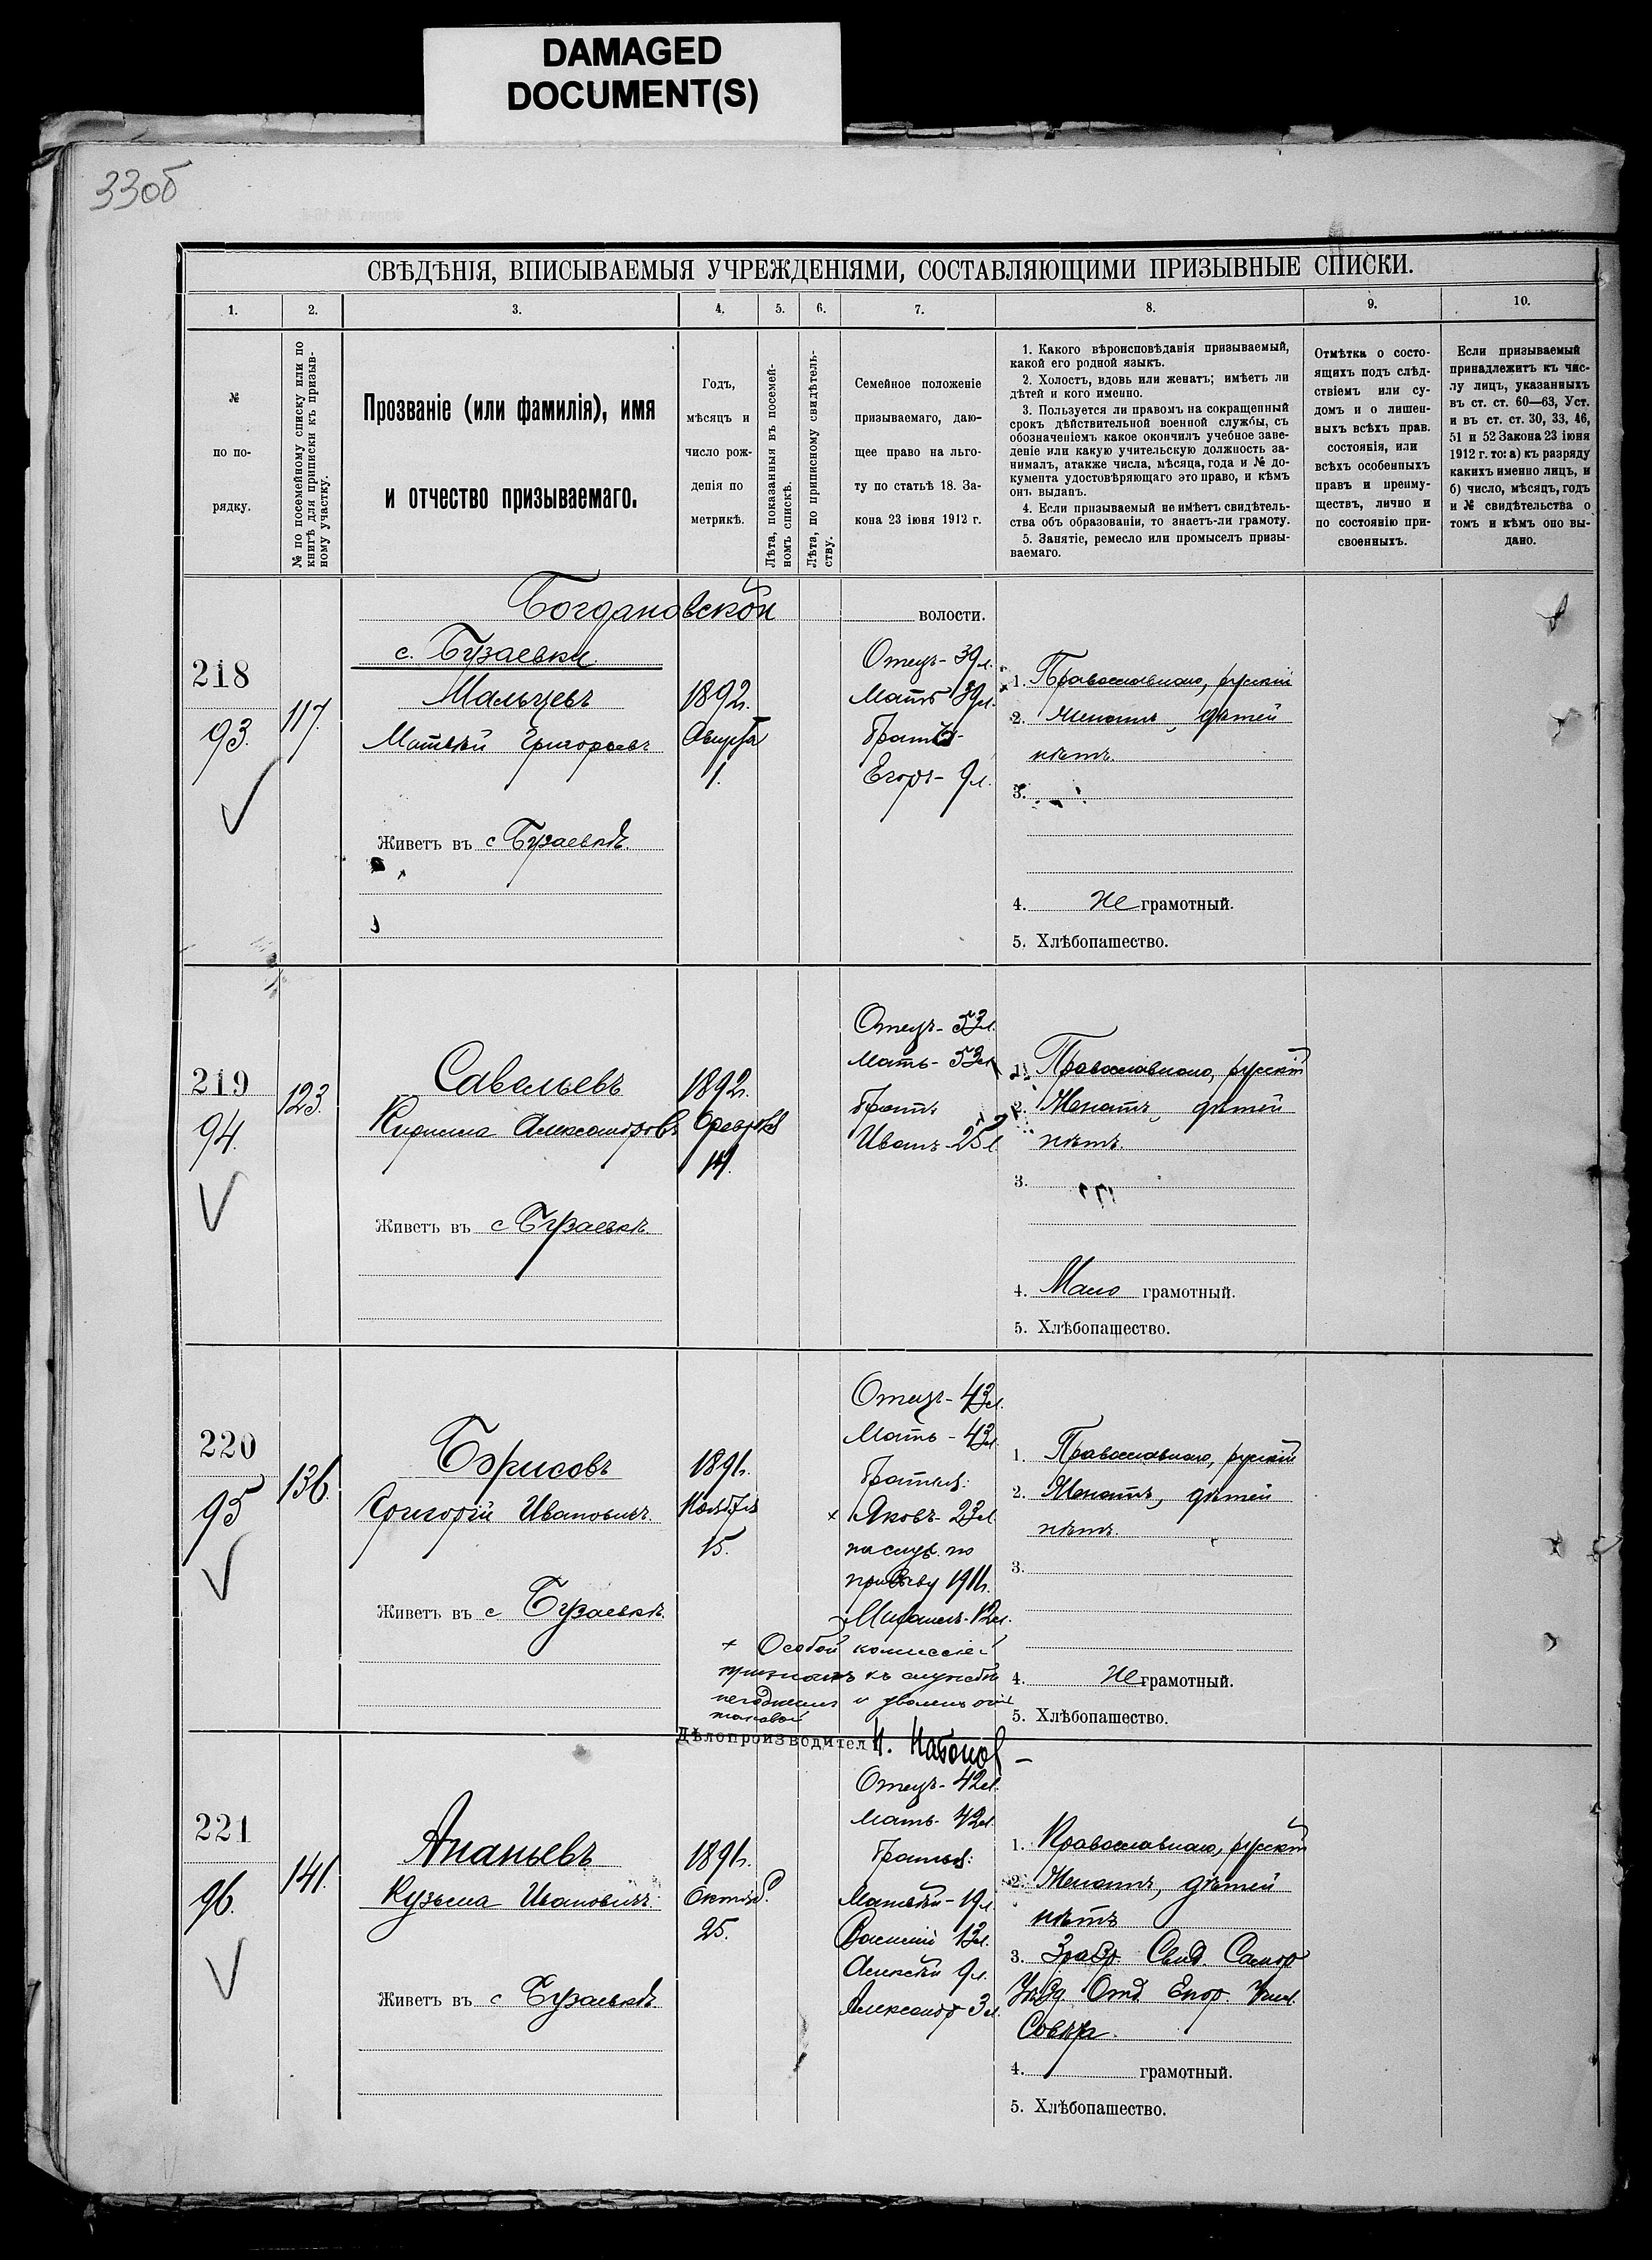 DAMAGED
DOCUMENT(S)
33об
СВѢДѢНІЯ, ВПИСЫВАЕМЫЯ УЧРЕЖДЕНІЯМИ, СОСТАВЛЯЮЩИМИ ПРИЗЫВНЫЕ СПИСКИ.
1. 2. 3. 4. 5. 6. 7. 8. 9. 10.
№
по по-
рядку.
№ по посемейному списку или по
книгѣ для приписки къ призыв-
ному участку.
Прозваніе (или фамилія), имя
и отчество призываемаго.
Годъ,
мѣсяцъ и
число рож-
денія по
метрикѣ.
Лѣта, показанныя въ посемей-
номъ спискѣ.
Лѣта, по приписному свидѣтель-
ству.
Семейное положеніе
призываемаго, даю-
щее право на льго-
ту по статьѣ 18. За-
кона 23 іюня 1912 г.
1. Какого вѣроисповѣданія призываемый,
какой его родной языкъ.
2. Холостъ, вдовъ или женатъ; имѣетъ ли
дѣтей и кого именно.
3. Пользуется ли правомъ на сокращенный
срокъ дѣйствительной военной службы, съ
обозначеніемъ какое окончилъ учебное заве-
деніе или какую учительскую должность за-
нималъ, атакже числа, мѣсяца, года и № до-
кумента удостовѣряющаго это право, и кѣмъ
онъ выданъ.
4. Если призываемый не имѣетъ свидѣтель-
ства объ образованіи, то знаетъ-ли грамоту.
5. Занятіе, ремесло или промыселъ призы-
ваемаго.
Отмѣтка о состо-
ящихъ подъ слѣд-
ствіемъ или су-
домъ и о лишен-
ныхъ всѣхъ прав.
состоянія, или
всѣхъ особенныхъ
правъ и преиму-
ществъ, лично и
по состоянію при-
своенныхъ.
Если призываемый
принадлежитъ къ чис-
лу лицъ, указанныхъ
въ ст. ст. 60—63, Уст.
и въ ст. ст. 30, 33, 46,
51 и 52 Закона 23 іюня
1912 г. то: а) къ разряду
какихъ именно лицъ, и
б) число, мѣсяцъ, годъ
и № свидѣтельства о
томъ и кѣмъ оно вы-
дано.
Богдановской волости.
с. Бузаевки
218
93.
117.
Мальцевъ
Матвѣй Григорьевъ
Живетъ въ с Бузаевкѣ.
1892г.
Августа
1.
Отецъ - 39 л.
Мать 39 л.
Братъ -
Егоръ - 9 л.
1. Православнаго, русскій
2. Женатъ, дѣтей
нѣтъ.
3.
4. Не грамотный.
5. Хлѣбопашество.
219
94.
123.
Савельевъ
Кирилла Александровъ
Живетъ въ с Бузаевкѣ.
1892г.
Февраля
14.
Отецъ - 53 л.
Мать - 53 л.
Братъ
Иванъ - 25 л.
1. Православнаго, русскій
2. Женатъ, дѣтей
нѣтъ.
3.
4. Мало грамотный.
5. Хлѣбопашество.
220
95
136.
Борисовъ
Григорій Ивановичъ
Живетъ въ с Бузаевкѣ.
1891г.
Ноября
15.
Отецъ - 43 л.
Мать - 43 л.
Братья:
× Яковъ - 23 л.
на служ. по
призыву 1911г.
Михаилъ - 12 л.
× Особой комиссіей
признанъ къ службѣ
негоднымъ и уволенъ отъ
таковой
Дѣлопроизводител
1. Православнаго, русскій
2. Женатъ, дѣтей
нѣтъ.
3.
4. Не грамотный.
5. Хлѣбопашество.
221
96.
141.
Ананьевъ
Кузьма Ивановичъ
Живетъ въ с Бузаевкѣ
1891г.
Октяб.
25.
Отецъ - 42 л.
Мать - 42 л.
Братья:
Матвѣй - 19 л.
Василій 13 л.
Алексѣй 9 л.
Александръ 3 л.
1. Православнаго, русскій
2. Женатъ, дѣтей
нѣтъ
3. Свид. Самар
Уѣзд Отд. Епар. Учил.
Совѣта.
4. грамотный.
5. Хлѣбопашество.